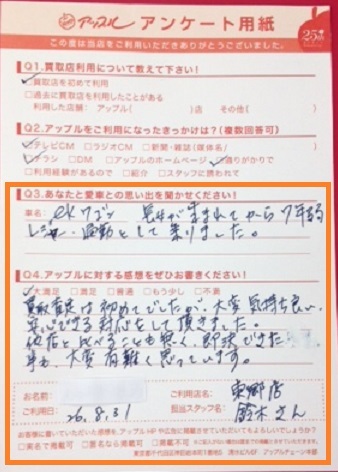 アップル アンケート用紙
25th
この度は当店をご利用いただきありがとうございました。
Q1.買取店利用について教えて下さい!
買取店を初めて利用
過去に買取店を利用したことがある
利用した店舗: アップル( )店 その他( )
Q2.アップルをご利用になったきっかけは?(複数回答可)
テレビCM ラジオCM 新聞・雑誌(媒体名/ )
チラシ DM アップルのホームページ 通りがかりで
利用経験があるので 紹介 スタッフに誘われて
Q3.あなたと愛車との思い出を聞かせください!
車名: ekワゴン 息子が生まれてから7年弱
レジャー・通勤として乗りました。
Q4.アップルに対する感想をぜひお書きください!
大満足 満足 普通 もう少し 不満
買取査定は初めてでしたが、大変気持ち良い、
安心できる対応をして頂きました。
他店と比べることも無く、即決できた
事も、大変有難く思っています。
お名前
ご利用日 26.8.31
ご利用店名: 東郷店
担当スタッフ名: 鈴木さん
お客様に書いていただいた感想をアップルHPや広告に掲載させていただいてもよろしいでしょうか?
実名で掲載可 匿名なら掲載可 掲載不可